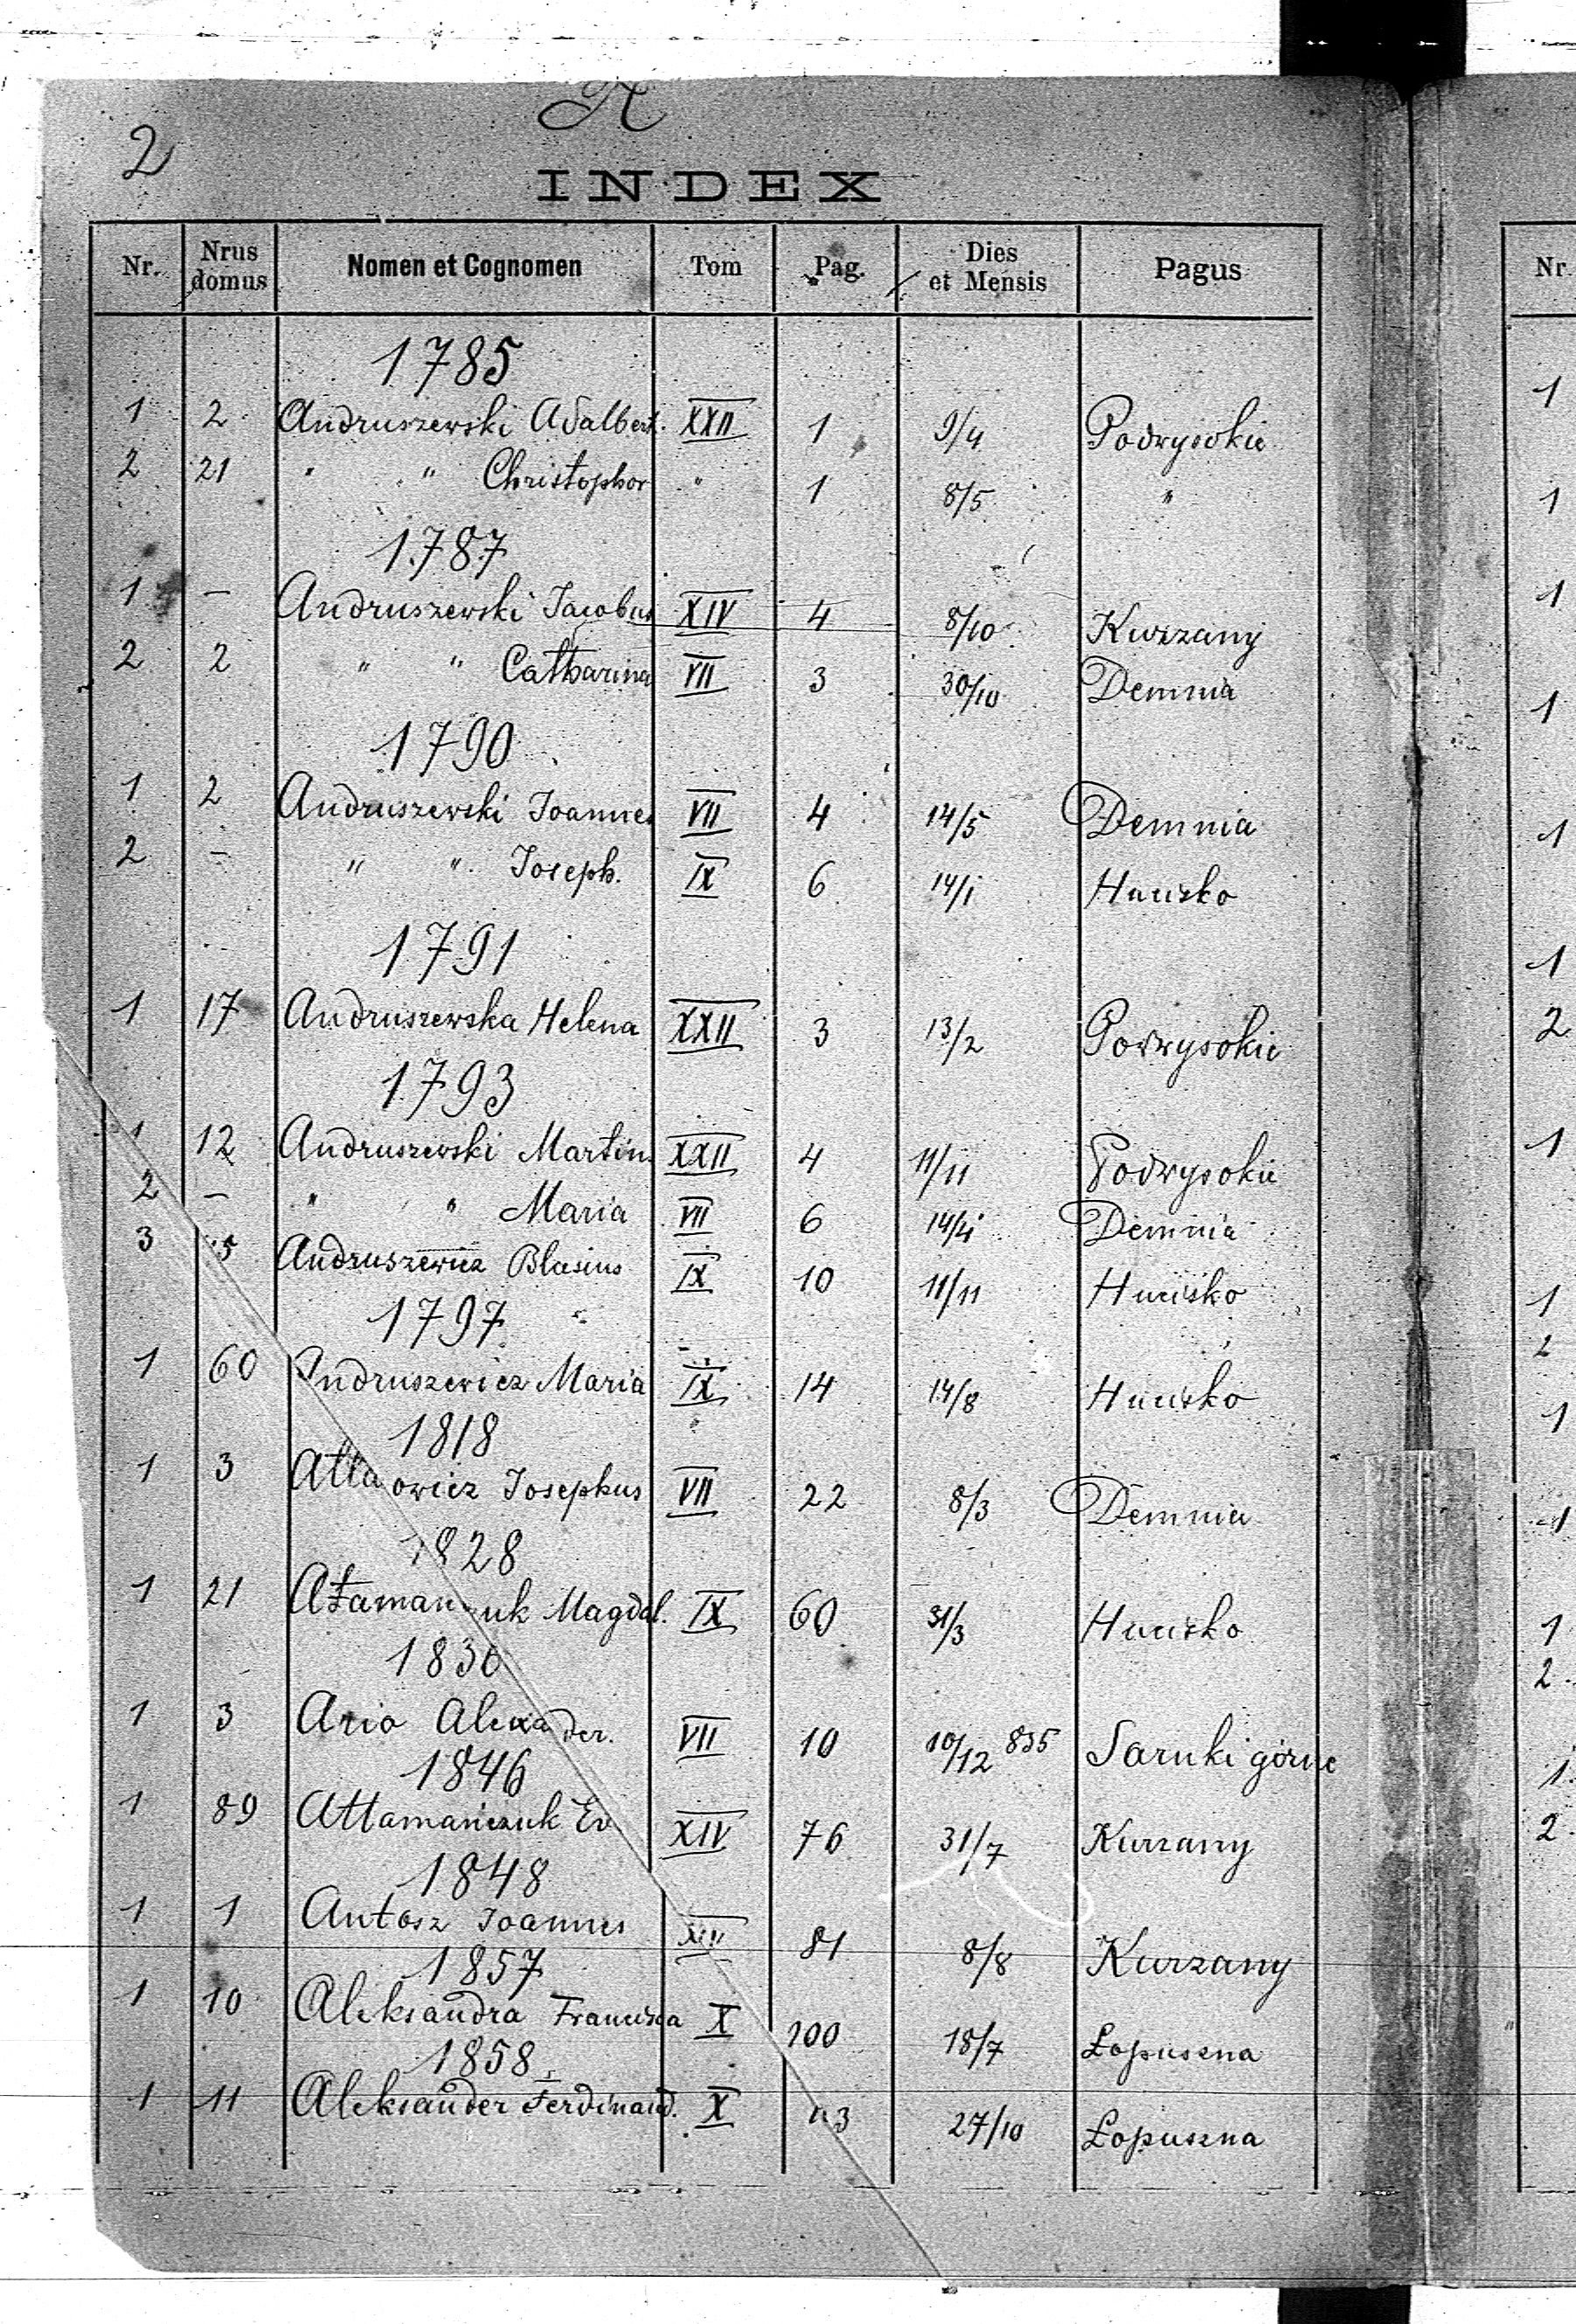 A
2
INDEX
Nr. Nrus domus Nomen et Cognomen Tom Pag. Dies et Mensis Pagus Nr
1785
1 2 Andruszewski Adalbert. XXII 1 9/4 Podwysokie 1
2 21 " " Christophor " 1 8/5 " 1
1787
1 – Andruszewski Jacobus XIV 4 8/10 Kurzany 1
2 2 " " Catharina VII 3 30/10 Demnia 1
1790
1 2 Andruszewski Joannes VII 4 14/5 Demnia 1
2 – " " Joseph. IX 6 14/1 Hucisko
1791
1 17 Andruszewska Helena XXII 3 13/2 Podwysokie 2
1793
1 12 Andruszewski Martin. XXII 4 11/11 Podwysokie 1
2 – " " Maria VII 6 14/4 Demnia
3 5 Andruszewicz Blasius IX 10 11/11 Hucisko 1
1797
1 60 Andruszewicz Maria IX 14 14/8 Hucisko 1
1818
1 3 Atta owicz Josephus VII 22 8/3 Demnia 1
1828
1 21 Ataman uk Magdal. IX 60 31/3 Hucisko 1
1830 2.
1 3 Ario Alexa der. VII 10 10/12 835 Sarnki górne
1846 1.
1 89 Attamańczuk Ev XIV 76 31/7 Kurzany 2.
1848
1 1 Antosz Joannes 81 8/8 Kurzany
1857
1 10 Aleksandra Francisca X 100 18/7 Łopuszna
1858
1 11 Aleksander Ferdinand. X 3 27/10 Łopuszna